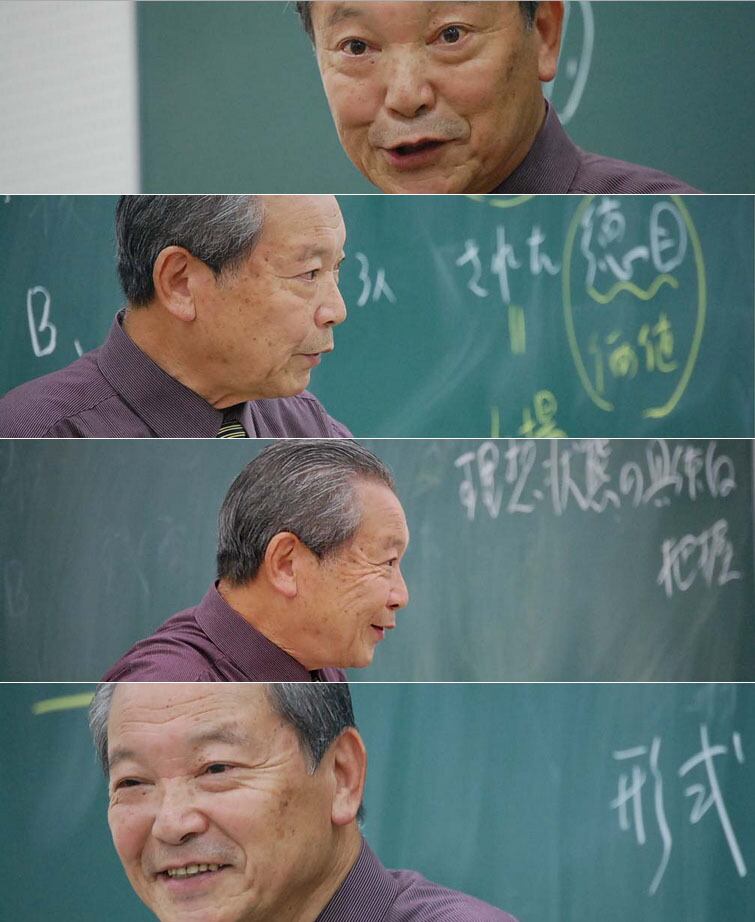 B
3人
された
徳目
価値
場
理想状態の具体的
把握
形式